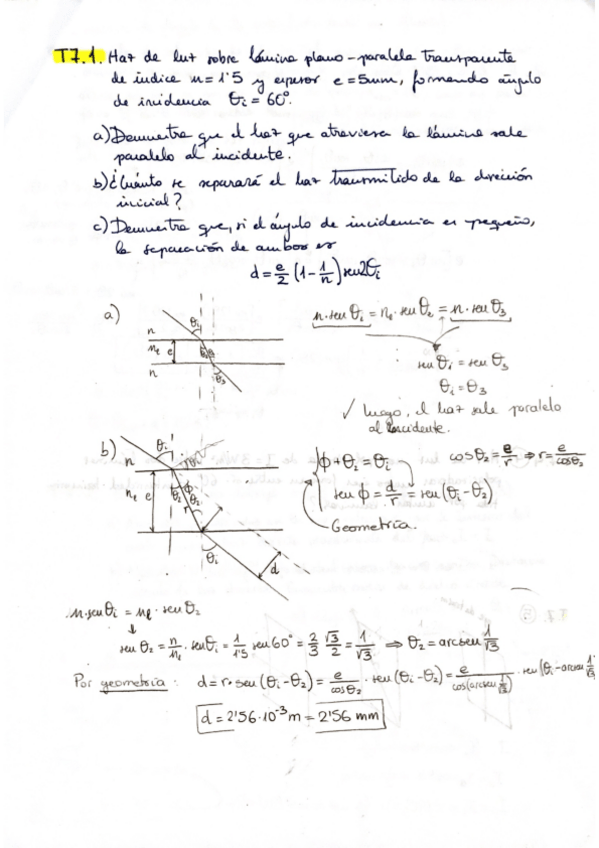 T7.1. Haz de luz sobre lámina plano-paralela transparente
de índice n=1'5 y espesor e=5mm, formando ángulo
de incidencia θi = 60°.
a) Demuestra que el haz que atraviesa la lámina sale
paralelo al incidente.
b) ¿Cuánto se separará el haz transmitido de la dirección
inicial?
c) Demuestra que, si el ángulo de incidencia es pequeño,
la separación de ambos es
d = e/2 (1 - 1/n) sen2θi
a)
θi
n
nl e
n
θ3
n·sen θi = nl·sen θ2 = n·sen θ3
sen θi = sen θ3
θi = θ3
✓ Luego, el haz sale paralelo
al incidente.
b)
θi
n
nl e
θ2 ϕ θ2
r
θi
d
ϕ + θ2 = θi
cos θ2 = e/r ⇒ r = e/cosθ2
sen ϕ = d/r = sen(θi - θ2)
Geometría.
n·sen θi = nl · sen θ2
↓
sen θ2 = n/nl · sen θi = 1/1'5 sen 60° = 2/3 √3/2 = 1/√3 ⇒ θ2 = arcsen 1/√3
Por geometría: d = r·sen(θi - θ2) = e/cosθ2 · sen(θi - θ2) = e/cos(arcsen 1/√3) · sen(θi - arcsen 1/√3
d = 2'56·10⁻³ m = 2'56 mm